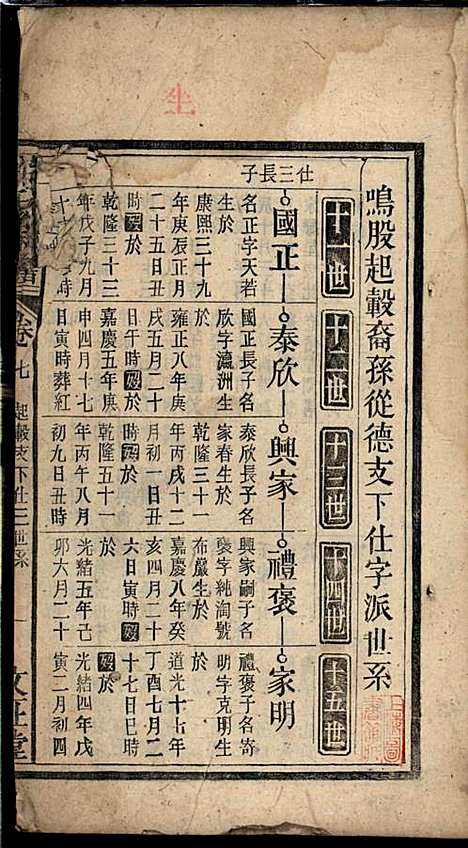 鳴股起轂裔孫從德支下仕字派世系
十一世
十二世
十三世
十四世
十五世
仕三長子
國正
泰欣
興家
禮褒
家明
名正字天若
生於
康熙三十九
年庚辰正月
二十五日丑
時歿於
乾隆三十三
年戊子九月
國正長子名
欣字瀛洲生
於
雍正八年庚
戌五月二十
日午時歿於
嘉慶五年庚
申四月十七
日寅時葬紅
泰欣長子名
家春生於
乾隆三十一
年丙戌十二
月初一日丑
時歿於
乾隆五十一
年丙午八月
初九日丑時
興家嗣子名
褒字純淘號
布嚴生於
嘉慶八年癸
亥四月二十
六日寅時歿
於
光緒五年己
卯六月二十
禮褒子名寄
明字克明生
於
道光十七年
丁酉七月二
十七日巳時
歿於
光緒四年戊
寅二月初四
卷七
起轂支下仕三世系
文在堂